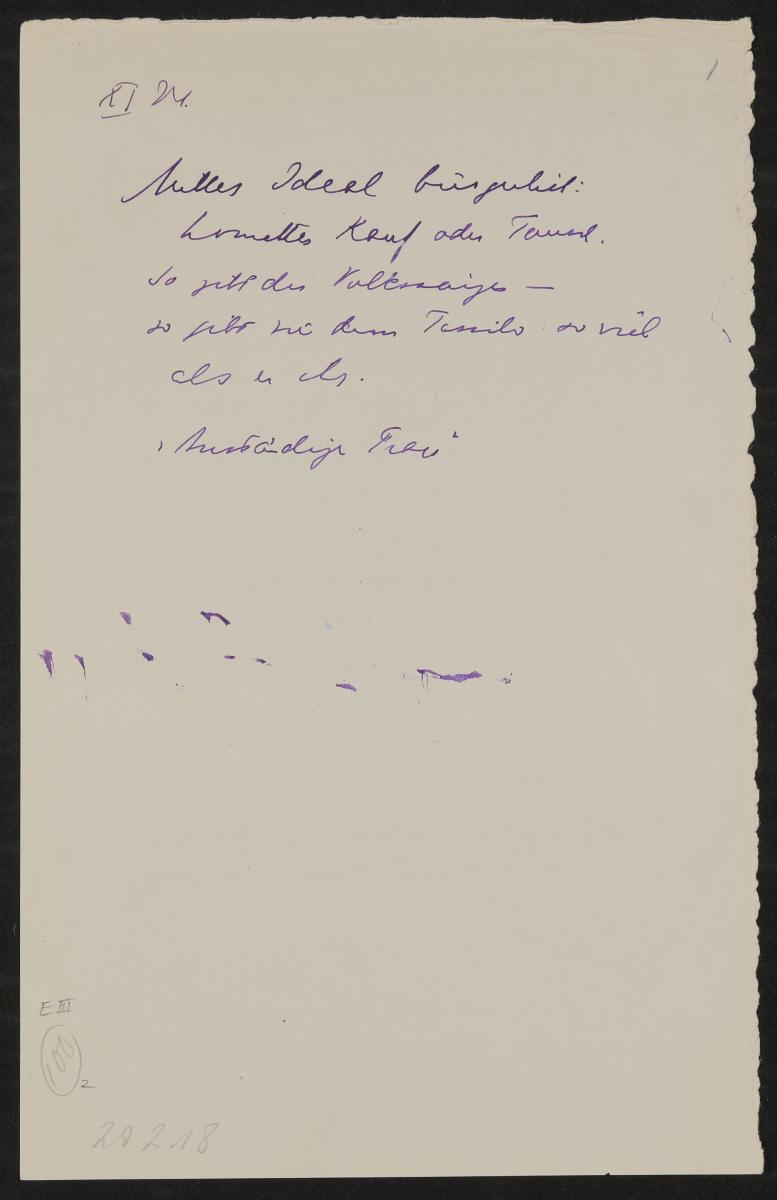 1
XI M.
Mutters Ideal bürgerlich:
korrettes Kauf oder Tausch.
So gibt der
so gibt sie dem Tassilo so viel
als er ihr.
„Anständige Frau"
E III
100
2
20218